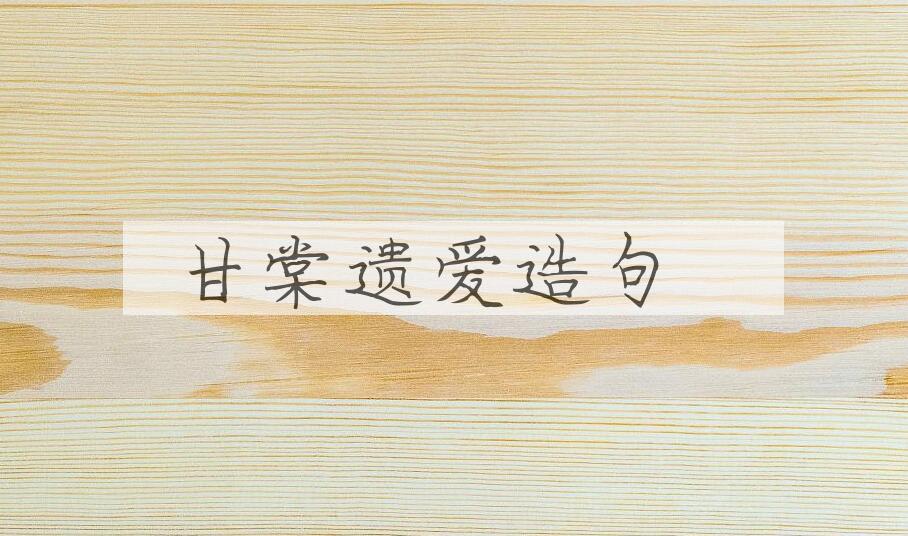 甘棠遗爱造句